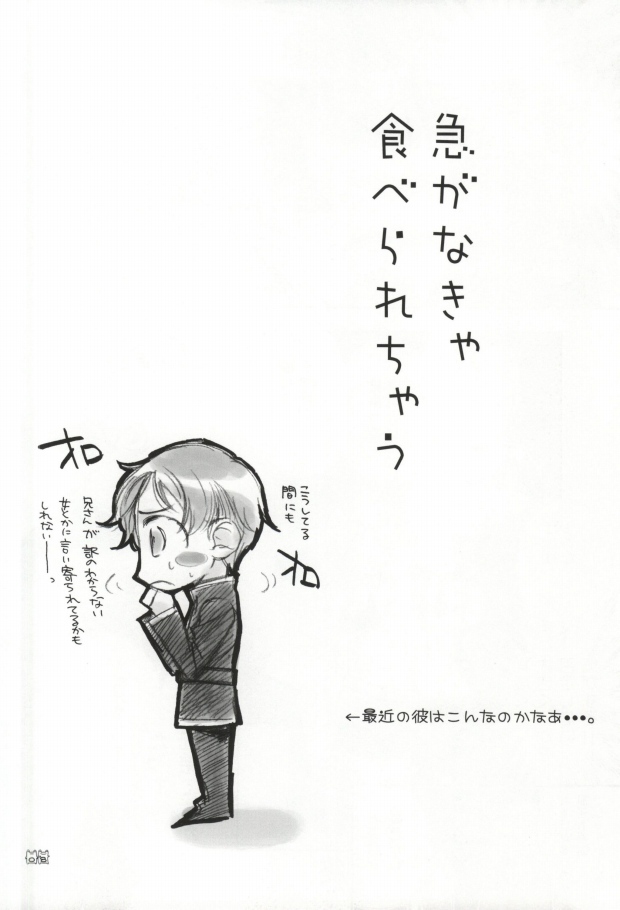 急がなきゃ
食べられちゃう
こうしてる
間にも
オロ
オロ
兄さんが訳のわからない
女とかに言い寄られてるかも
しれないーーっ
←最近の彼はこんなのかなあ・・・。